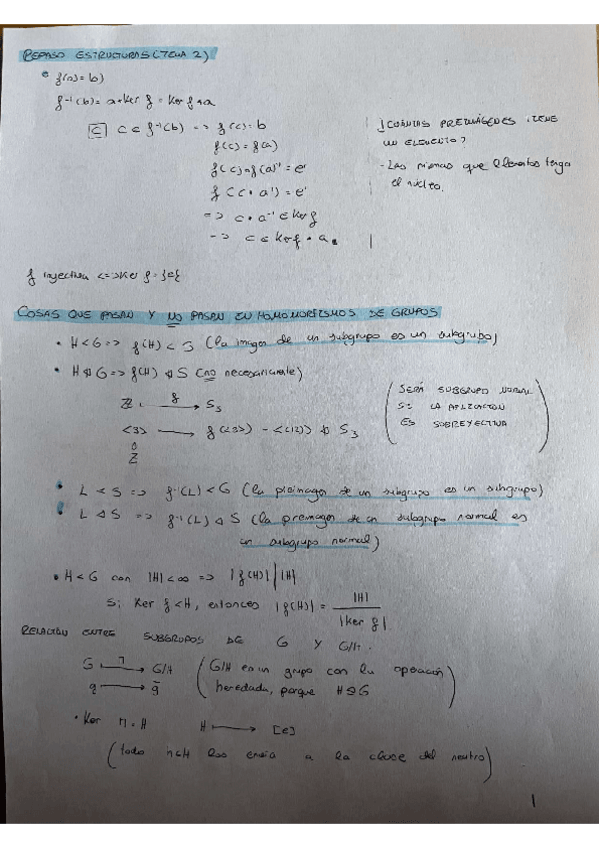 REPASO ESTRUCTURAS (TEMA 2)
f(a) = b)
f⁻¹(b) = a * Ker f = Ker f * a
⊂ c ∈ f⁻¹(b) => f(c) = b
f(c) = f(a)
f(c) * f(a)⁻¹ = e'
f(c * a⁻¹) = e'
=> c * a⁻¹ ∈ Ker f
=> c ∈ Ker f * a
¿CUÁNTAS PREIMÁGENES TIENE
UN ELEMENTO?
- Las mismas que elementos tenga
el núcleo.
f inyectiva <=> Ker f = {e}
COSAS QUE PASAN Y NO PASAN EN HOMOMORFISMOS DE GRUPOS
• H < G => f(H) < S (la imagen de un subgrupo es un subgrupo)
• H ⊲ G => f(H) ⊲ S (no necesariamente)
Z → f S₃
<3> → f(<3>) = <(12)> ⋪ S₃
Z
(SERÁ SUBGRUPO NORMAL
SI LA APLICACION
ES SOBREYECTIVA)
• L < S => f⁻¹(L) < G (la preimagen de un subgrupo es un subgrupo)
• L ⊲ S => f⁻¹(L) ⊲ S (la preimagen de un subgrupo normal es
un subgrupo normal)
• H < G con |H| < ∞ => |f(H)| | |H|
Si Ker f < H, entonces |f(H)| = |H| / |Ker f|
RELACIÓN ENTRE SUBGRUPOS DE G Y G/H.
G → η G/H (G/H es un grupo con la operación
g → ḡ heredada, porque H ⊴ G)
• Ker η = H H → [e]
(todo h∈H los envía a la clase del neutro)
1